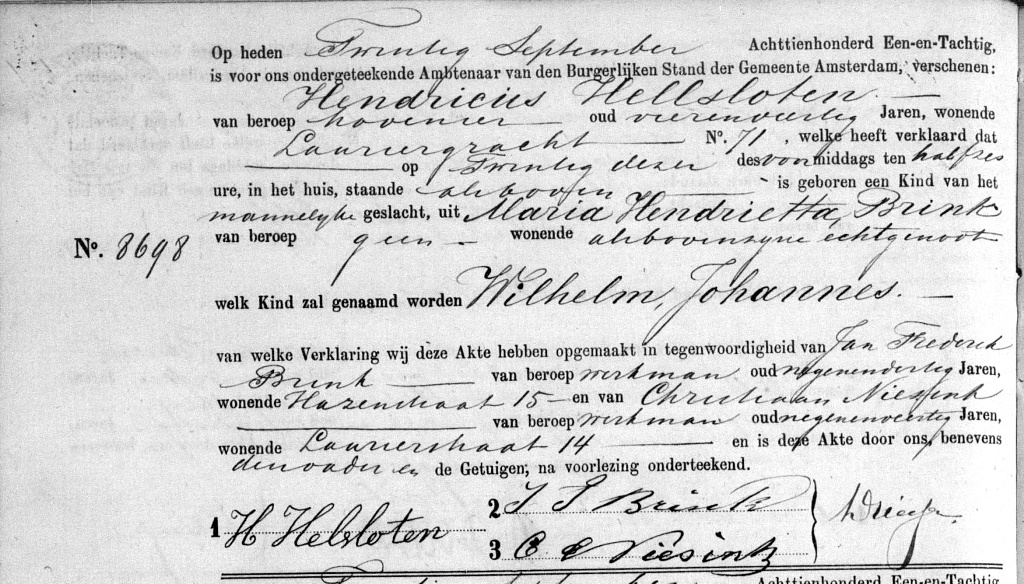 Op heden Twintig September Achttienhonderd Een-en-Tachtig,
is voor ons ondergeteekende Ambtenaar van den Burgerlijken Stand der Gemeente Amsterdam, verschenen:
Hendricus Hellsloten
van beroep hovenier oud vierenveertig Jaren, wonende
Lauriergracht No. 71, welke heeft verklaard dat
op Twintig dezer des voormiddags ten half zes
ure, in het huis, staande alsboven is geboren een Kind van het
mannelyke geslacht, uit Maria Hendrietta Brink
van beroep geen wonende alsboven zyne echtgenoot
No. 8698
welk Kind zal genaamd worden Wilhelm, Johannes.
van welke Verklaring wij deze Akte hebben opgemaakt in tegenwoordigheid van Jan Frederik
Brink van beroep werkman oud negenendertig Jaren,
wonende Hazenstraat 15 en van Christiaan Niesink
van beroep werkman oud negenenveertig Jaren,
wonende Laurierstraat 14 en is deze Akte door ons, benevens
den vader en de Getuigen, na voorlezing onderteekend.
1 H Helsloten
2 J F Brink
3 C Niesink
Achttienhonderd Een-en-Tachtig